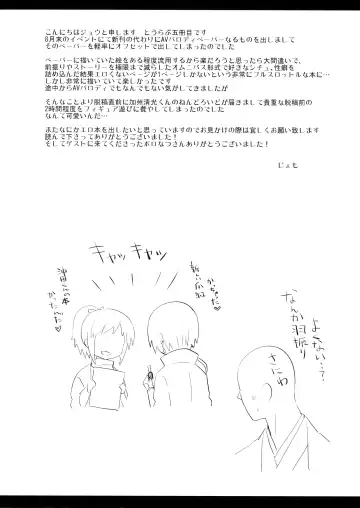 こんにちはジュウと申します　とうらぶ五冊目です
6月末のイベントにて新刊の代わりにAVパロディペーパーなるものを出しまして
そのペーパーを軽率にオフセットで出してしまったのでした
ペーパーに描いていた絵をある程度流用するから楽だろうと思ったら大間違いで、
前振りやストーリーを極限まで減らしたオムニバス形式で好きなシチュ、性癖を
詰め込んだ結果エロくないページが1ページしかないという非常にフルスロットルな本に…
しかし非常に描いていて楽しかったです
途中からAVパロディでもなんでもない気がしてきましたが
そんなことより脱稿直前に加州清光くんのねんどろいどが届きまして貴重な脱稿前の
2時間程度をフィギュア遊びに費やしてしまったのでした
なんて可愛いんだ…
またなにかエロ本を出したいと思っていますのでお見かけの際は宜しくお願い致します
読んで下さってありがとうございました！
そしてゲストに来てくださったボロなつさんありがとうございました！
じょも
キャッキャッ
かっちゃった
かったんだ
よくない…？
なんか羽振り
さにわ